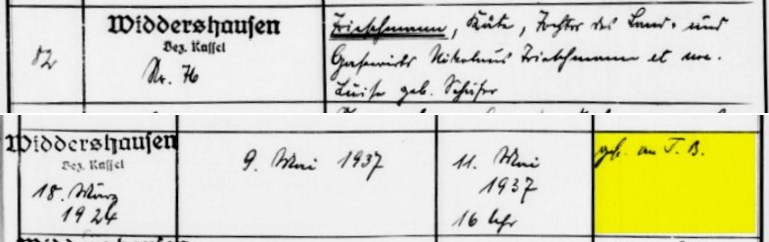 82
Widdershausen
Bez. Kassel
Nr. 76
Trieschmann, Käte, Tochter des Land- und
Gastwirts Nikolaus Trieschmann et ux.
Luise geb. Schäfer
Widdershausen
Bez. Kassel
18. März
1924
9. Mai 1937
11. Mai
1937
16 Uhr
gest. an T. B.
Widdershausen